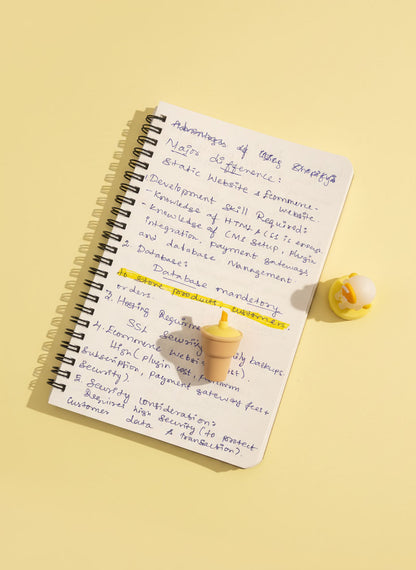 Advantages of Using Shopify
Major difference:
Static Website & Ecommerce
Website.
1. Development Skill Required:
- Knowledge of HTML & CSS is enough
- Knowledge of CMS Setup, Plugin
integration, Payment gateways
and database Management
2. Database:
Database mandatory
to store products, customers,
orders.
3. Hosting Requirem
SSL Security backups
4. Ecommerce Websit
High (Plugin cost,
Subscription, Payment gateway fees &
Security).
5. Security Considerations
Requires high Security (to protect
Customer data & transaction).